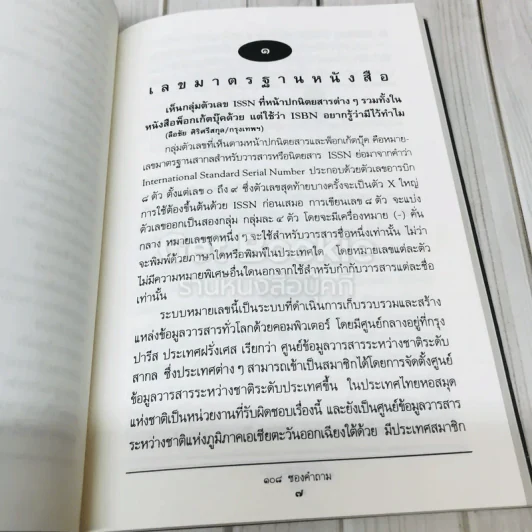 ๑
เลขมาตรฐานหนังสือ
เห็นกลุ่มตัวเลข ISSN ที่หน้าปกนิตยสารต่าง ๆ รวมทั้งใน
หนังสือพ็อกเก้ตบุ๊คด้วย แต่ใช้ว่า ISBN อยากรู้ว่ามีไว้ทำไม
(ลือชัย ศิริศรีสกุล/กรุงเทพฯ)
กลุ่มตัวเลขที่เห็นตามหน้าปกนิตยสารและพ็อกเก้ตบุ๊ค คือหมาย-
เลขมาตรฐานสากลสำหรับวารสารหรือนิตยสาร ISSN ย่อมาจากคำว่า
International Standard Serial Number ประกอบด้วยตัวเลขอารบิก
๘ ตัว ตั้งแต่เลข ๐ ถึง ๙ ซึ่งตัวเลขสุดท้ายบางครั้งจะเป็นตัว X ใหญ่
การใช้ต้องขึ้นต้นด้วย ISSN ก่อนเสมอ การเขียนเลข ๘ ตัว จะแบ่ง
ตัวเลขออกเป็นสองกลุ่ม กลุ่มละ ๔ ตัว โดยจะมีเครื่องหมาย (-) คั่น
กลาง หมายเลขชุดหนึ่ง ๆ จะใช้สำหรับวารสารชื่อหนึ่งเท่านั้น ไม่ว่า
จะพิมพ์ด้วยภาษาใดหรือพิมพ์ในประเทศใด โดยหมายเลขแต่ละตัว
ไม่มีความหมายพิเศษอื่นใดนอกจากใช้สำหรับกำกับวารสารแต่ละชื่อ
เท่านั้น
ร้านหนังสือบุคก์
ระบบหมายเลขนี้เป็นระบบที่ดำเนินการเก็บรวบรวมและสร้าง
แหล่งข้อมูลวารสารทั่วโลกด้วยคอมพิวเตอร์ โดยมีศูนย์กลางอยู่ที่กรุง
ปารีส ประเทศฝรั่งเศส เรียกว่า ศูนย์ข้อมูลวารสารระหว่างชาติระดับ
สากล ซึ่งประเทศต่าง ๆ สามารถเข้าเป็นสมาชิกได้โดยการจัดตั้งศูนย์
ข้อมูลวารสารระหว่างชาติระดับประเทศขึ้น ในประเทศไทยหอสมุด
แห่งชาติเป็นหน่วยงานที่รับผิดชอบเรื่องนี้ และยังเป็นศูนย์ข้อมูลวารสาร
ระหว่างชาติแห่งภูมิภาคเอเชียตะวันออกเฉียงใต้ด้วย มีประเทศสมาชิก
๑๐๘ ซองคำถาม
๗